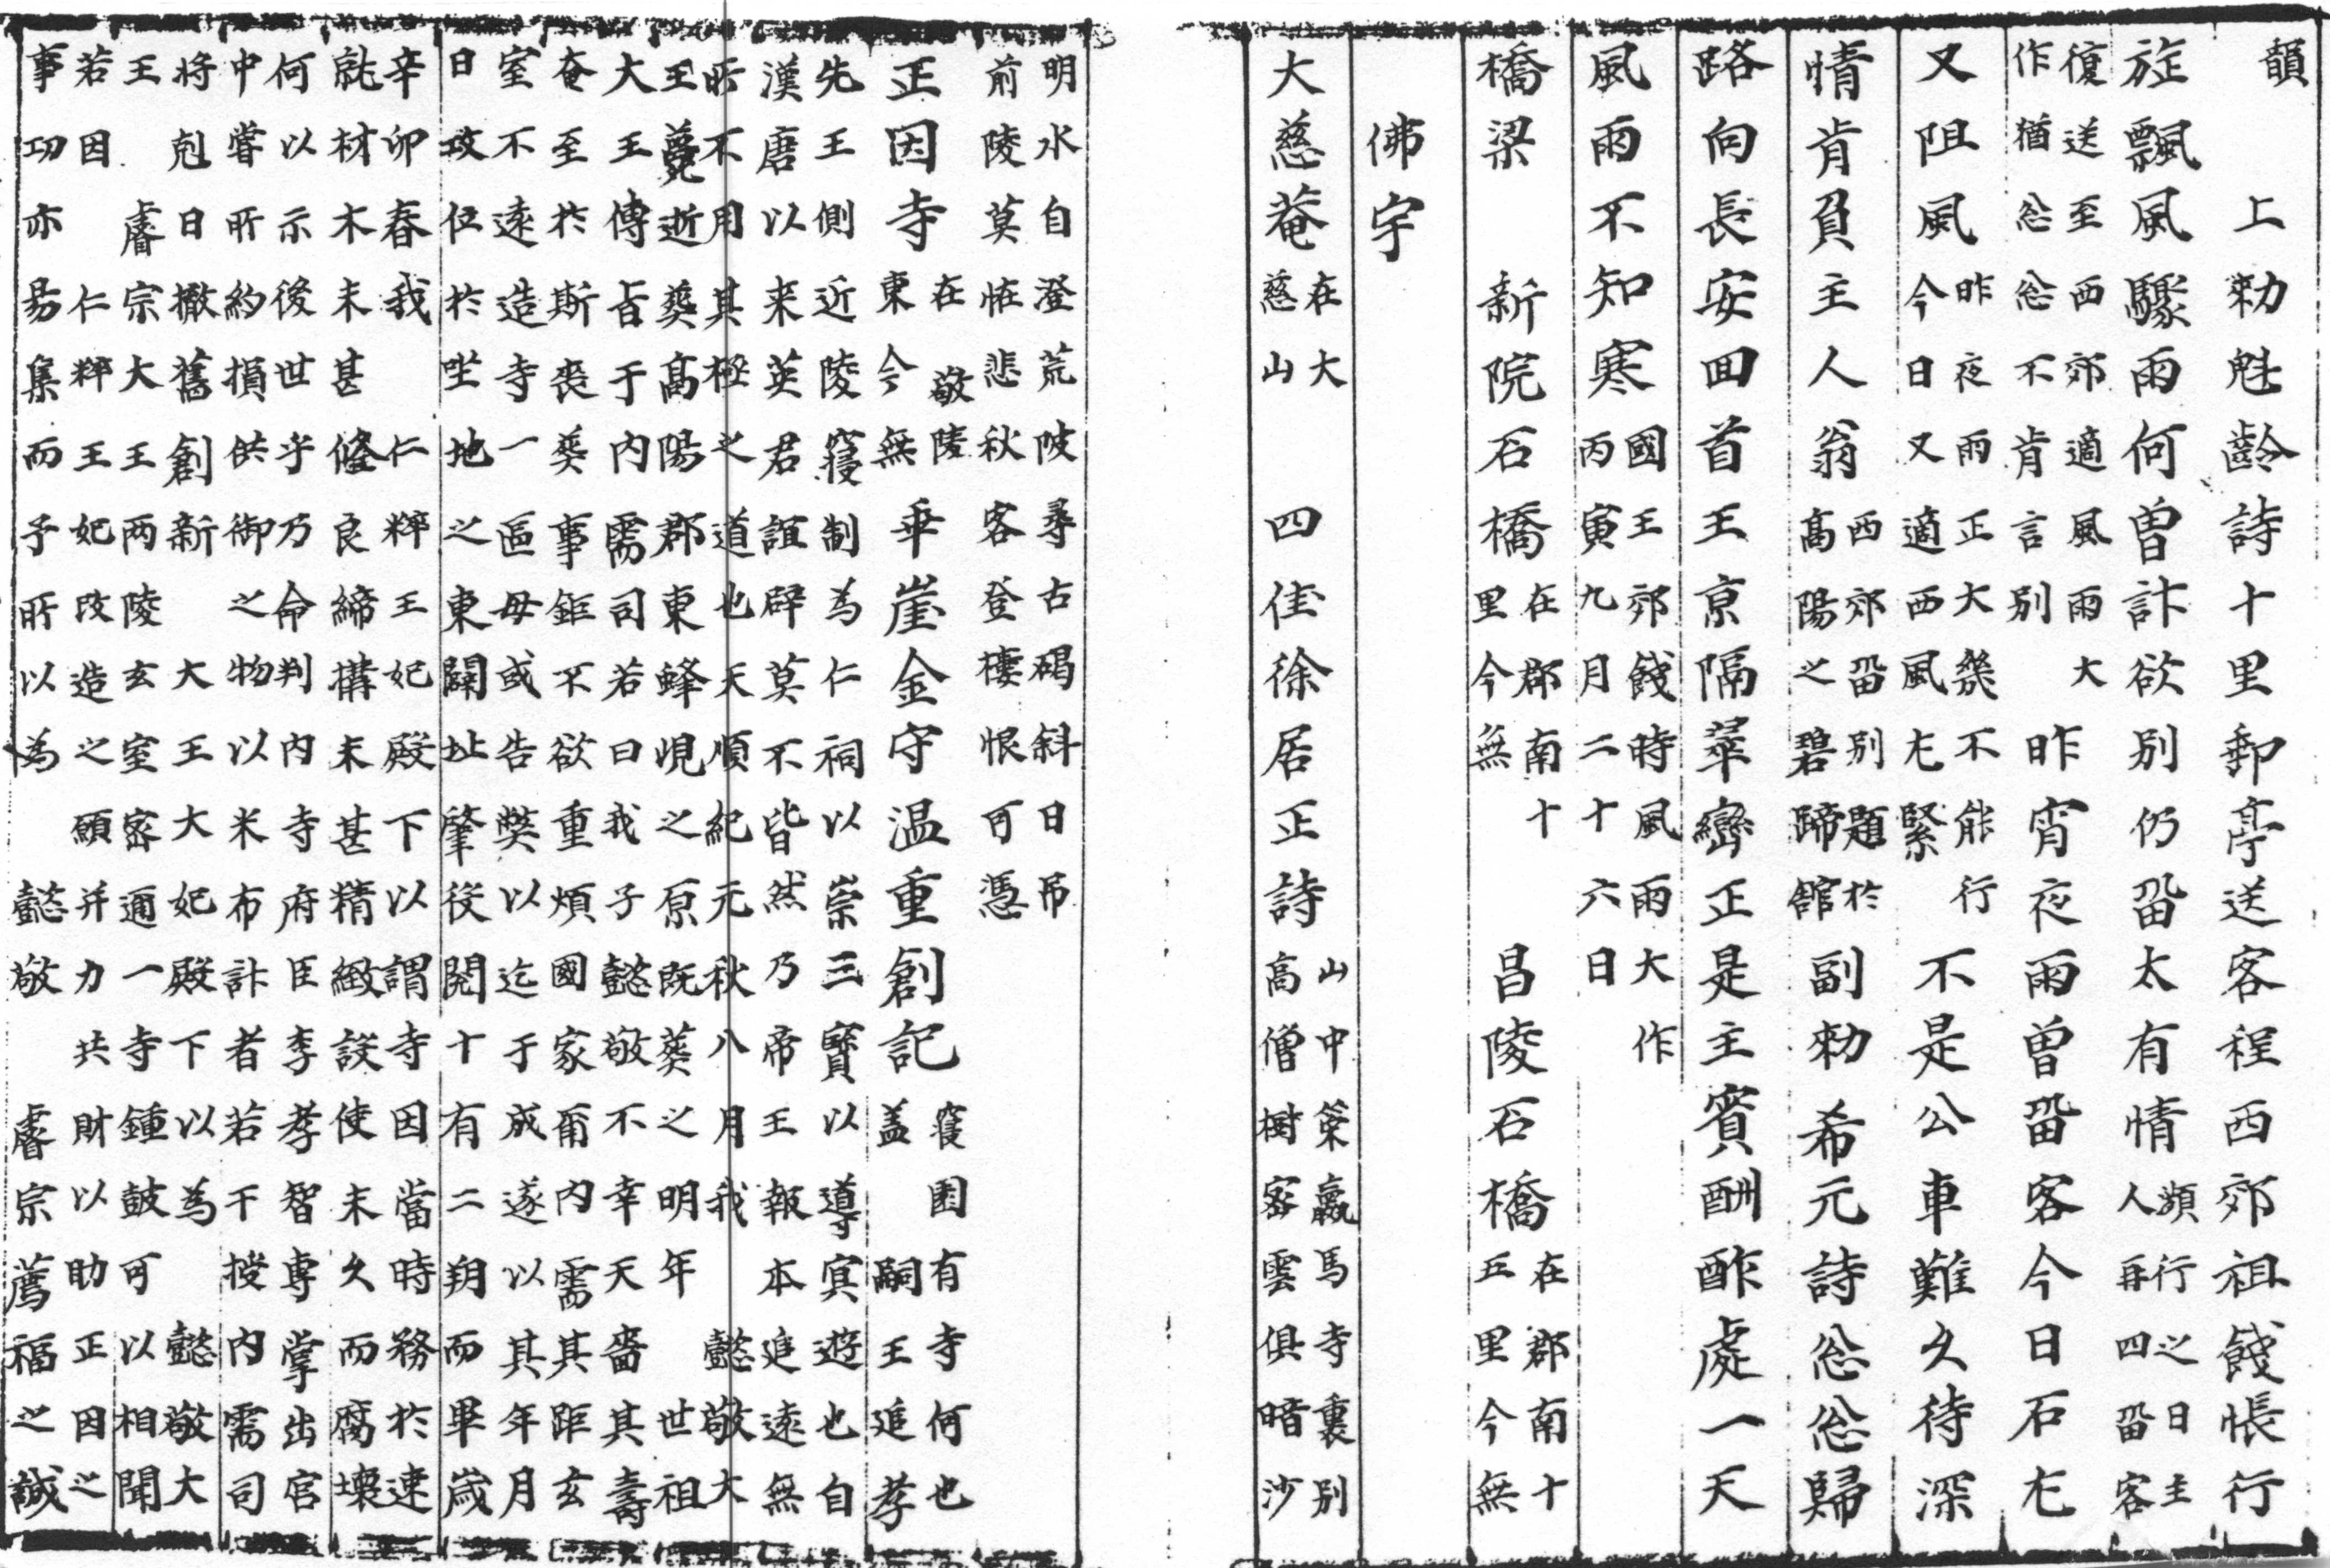 韻　上勑魁齡詩十里郵亭送客程西郊祖餞帳行
旌飄風驟雨何曾訃欲別仍畱太有情頻行之日主人再四畱客
復送至西郊適風雨大作猶忩忩不肯言別　昨宵夜雨曾畱客今日石尤
又阻風昨夜雨正大幾不能行今日又適西風尤緊　不是公車難久待深
情肯負主人翁西郊畱別題於高陽之碧蹄館　副勑希元詩忩忩歸
路向長安回首王京隔萃巒正是主賓酬酢處一天
風雨不知寒國王郊餞時風雨大作丙寅九月二十六日
橋梁　新院石橋在郡南十里今無　昌陵石橋在郡南十五里今無
佛宇
大慈菴在大慈山　四佳徐居正詩山中策蠃馬寺裏別高僧樹密雲俱暗沙
明水自澄荒陂尋古碣斜日吊前陵莫恠悲秋客登樓恨可憑
正因寺在敬陵東今無　乖崖金守温重創記寢園有寺何也盖嗣王追孝
先王側近陵寢制為仁祠以崇三寶以導㝠遊也自
漢唐以来英君誼辟莫不皆然乃帝王報本追遠無
所不用其極之道也天順紀元秋八月我　懿敬大
王薨逝葬高陽郡東蜂峴之原既葬之明年　世祖
大王傳旨于内需司若曰我子懿敬不幸天嗇其壽
奄至於斯喪葬事鉅不欲重煩國家爾内需其距玄
室不遠造寺一區毋或告獘以迄于成遂以其年月
日攻位於坐地之東闢址肇役閱十有二朔而畢歲
辛卯春我　仁粹王妃殿下以謂寺因當時務於速
就材木未甚脩良締搆未甚精緻設使未久而腐壞
何以示後世乎乃命判内寺府臣李孝智專掌出宫
中甞所約損供御之物以米布計者若干授内需司
将尅日撤舊創新　大王大妃殿下以為　懿敬大
王　睿宗大王兩陵玄室密邇一寺鍾鼓可以相聞
若因　仁粹王妃改造之願并力共財以助正因之
事功亦易集而予所以為　懿敬　睿宗薦福之誠